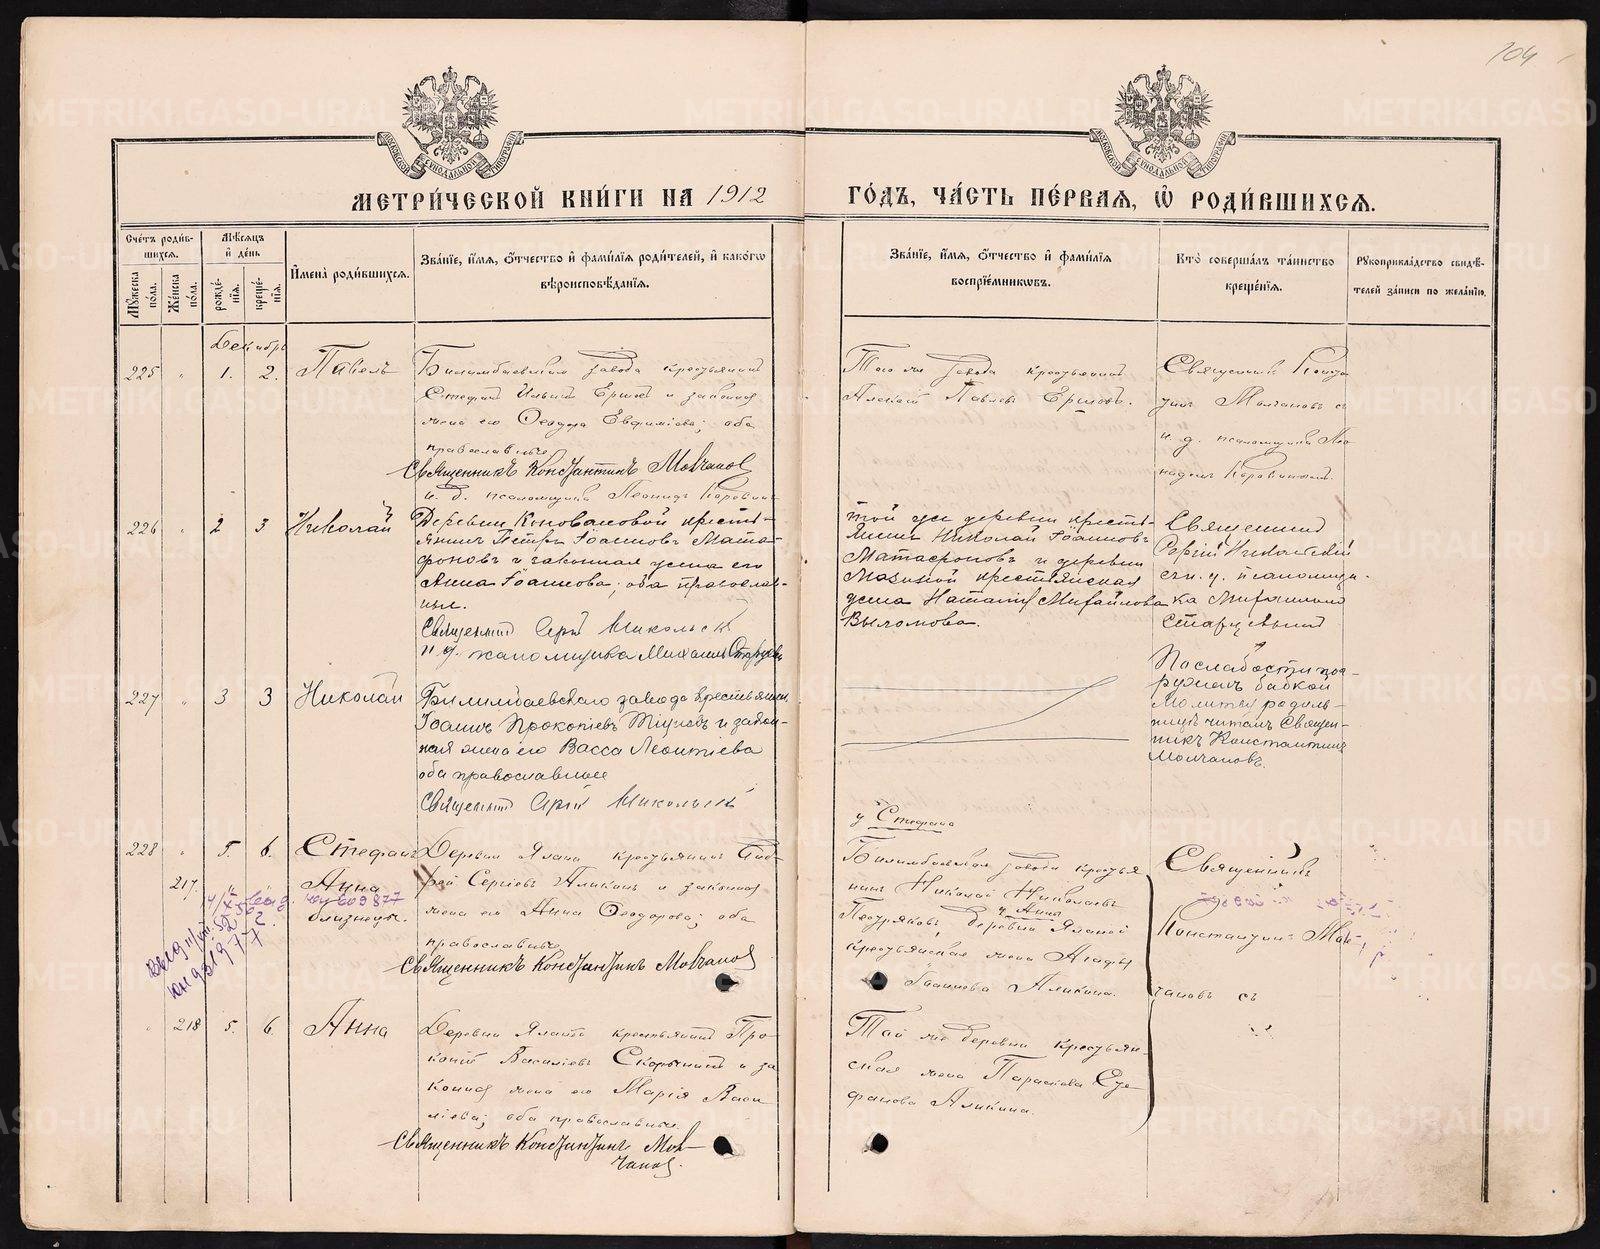 104
МЕТРИ́ЧЕСКОЙ КНИ́ГИ НА 1912
ГО́ДЪ, ЧА́СТЬ ПЕ́РВАЯ, Ѡ РОДИ́ВШИХСЯ.
Счетъ роди́в-
шихся.
Мѣсяцъ
и де́нь
Имена̀ роди́вшихся.
Зва́нїе, и́мя, о́тчество и фами́лїя роди́телей, и како́гѡ
вѣроисповѣ́данїя.
Зва́нїе, и́мя, о́тчество и фами́лїя
воспрїе́мникѡвъ.
Кто̀ соверша́лъ та́инство
креще́нїя.
Рꙋкоприкла́дство свидѣ́-
телей за́писи по жела́нїю.
Мꙋжеска
по́ла.
Же́нска
по́ла.
рожде́-
нїя.
креще́-
нїя.
Декабрь
225 " 1. 2. Павелъ
Билимбаевскаго завода крестьянинъ
Стефанъ Ильинъ Ершовъ и законная
жена его Ѳеодора Евфиміева; оба
православные
Священникъ Константинъ Молчановъ
и. д. псаломщика Леонидъ Коровинъ
Того же завода крестьянинъ
Алексій Павловъ Ершовъ.
Священникъ Конста
тинъ Молчановъ съ
и. д. псаломщика Лео
нидомъ Коровинымъ.
226 " 2 3 Николай
Деревни Коноваловой кресть-
янинъ Петръ Іоанновъ Мата-
фоновъ и законная жена его
Анна Іоаннова; оба православ-
ные.
Священникъ Сергій Никольскій
и. д. псаломщика Михаилъ Старцевъ
Той же деревни кресть-
янинъ Николай Іоанновъ
Матафоновъ и деревни
крестьянская
жена Наталія Михайлова
Священникъ
Сергій Никольскій
съ и. д. псаломщи-
ка Михаиломъ
Старцевымъ
227 " 3 3 Николай
Билимбаевскаго завода крестьянинъ
Іоаннъ Прокопіевъ и закон-
ная жена его Васса Леонтіева
оба православные
Священникъ Сергій Никольскій
По слабости пог-
руженъ бабкой
Молитву родиль-
ницѣ читалъ Священ-
никъ Константинъ
Молчановъ.
228 " 5. 6. Стефанъ
217. " " Анна
близнецы.
Деревни крестьянинъ
Сергіевъ Аликинъ и законная
жена его Анна Ѳеодорова; оба
православные
Священникъ Константинъ Молчановъ
у Стефана
Билимбаевскаго завода кресть
нинъ Николай Николаевъ
у Анны
деревни
крестьянская жена
Іоаннова Аликина.
Священникъ
Константинъ Мол-
чановъ съ
" 218 5. 6. Анна
Деревни крестьянинъ Про-
копій Василіевъ и за
конная жена его Марія Васи
ліева; оба православные
Священникъ Константинъ Мол-
чановъ.
Той же деревни крестьян-
ская жена Параскева Сте
фанова Аликина.